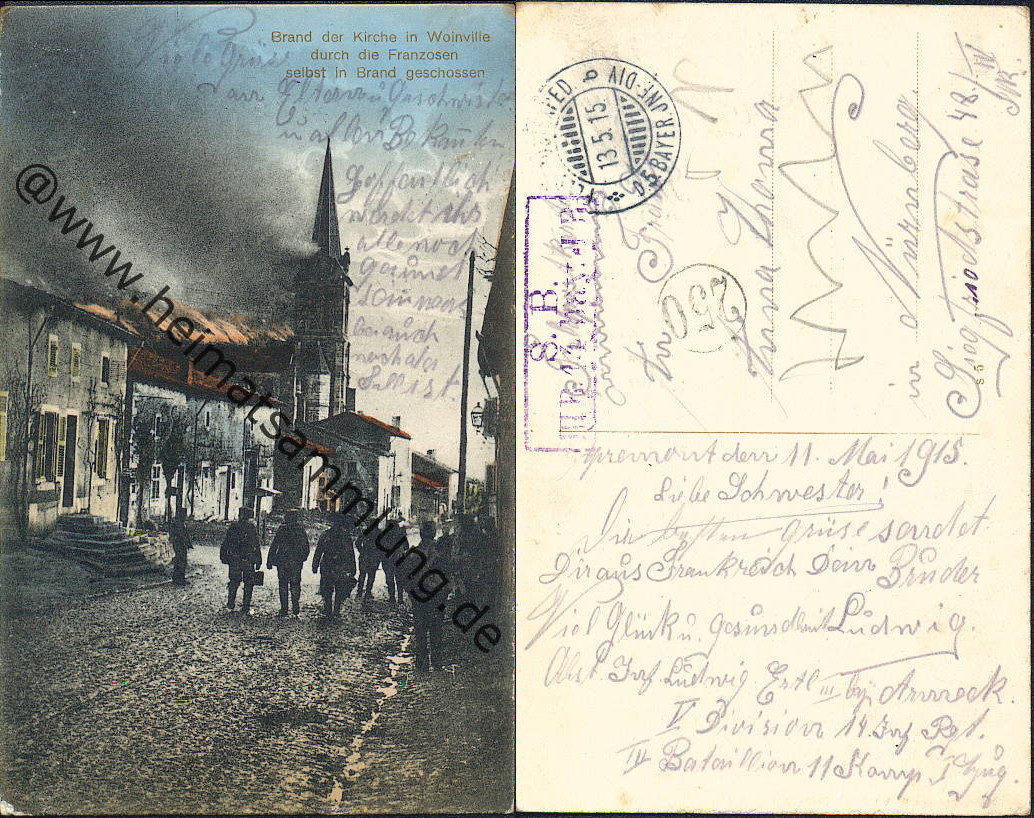 Brand der Kirche in Woinville
durch die Franzosen
selbst in Brand geschossen
Viele Grüse
an Eltern u Geschwist
u allen Bekannten
Hoffentlich
werdet ihr
alle noch
gesund
sein was
bei auch
noch der
Fall ist
@www.heimatsammlung.de
13.5.15
b
5 BAYER.INF-DIV
S. B.
250
An
Frau
Anna Thoma
in Nürnberg
Siegfriedstrase 48
IV
Apremont den 11. Mai 1915.
Liebe Schwester!
Die besten grüse sendet
Dir aus Frankreich Dein Bruder
Viel Glück u. gesundheit Ludwig.
Abst. Inf. Ludwig Ertl III bay Armeek.
V Division 14. Inf Rgt.
IV Bataillion 11 Komp I Zug.